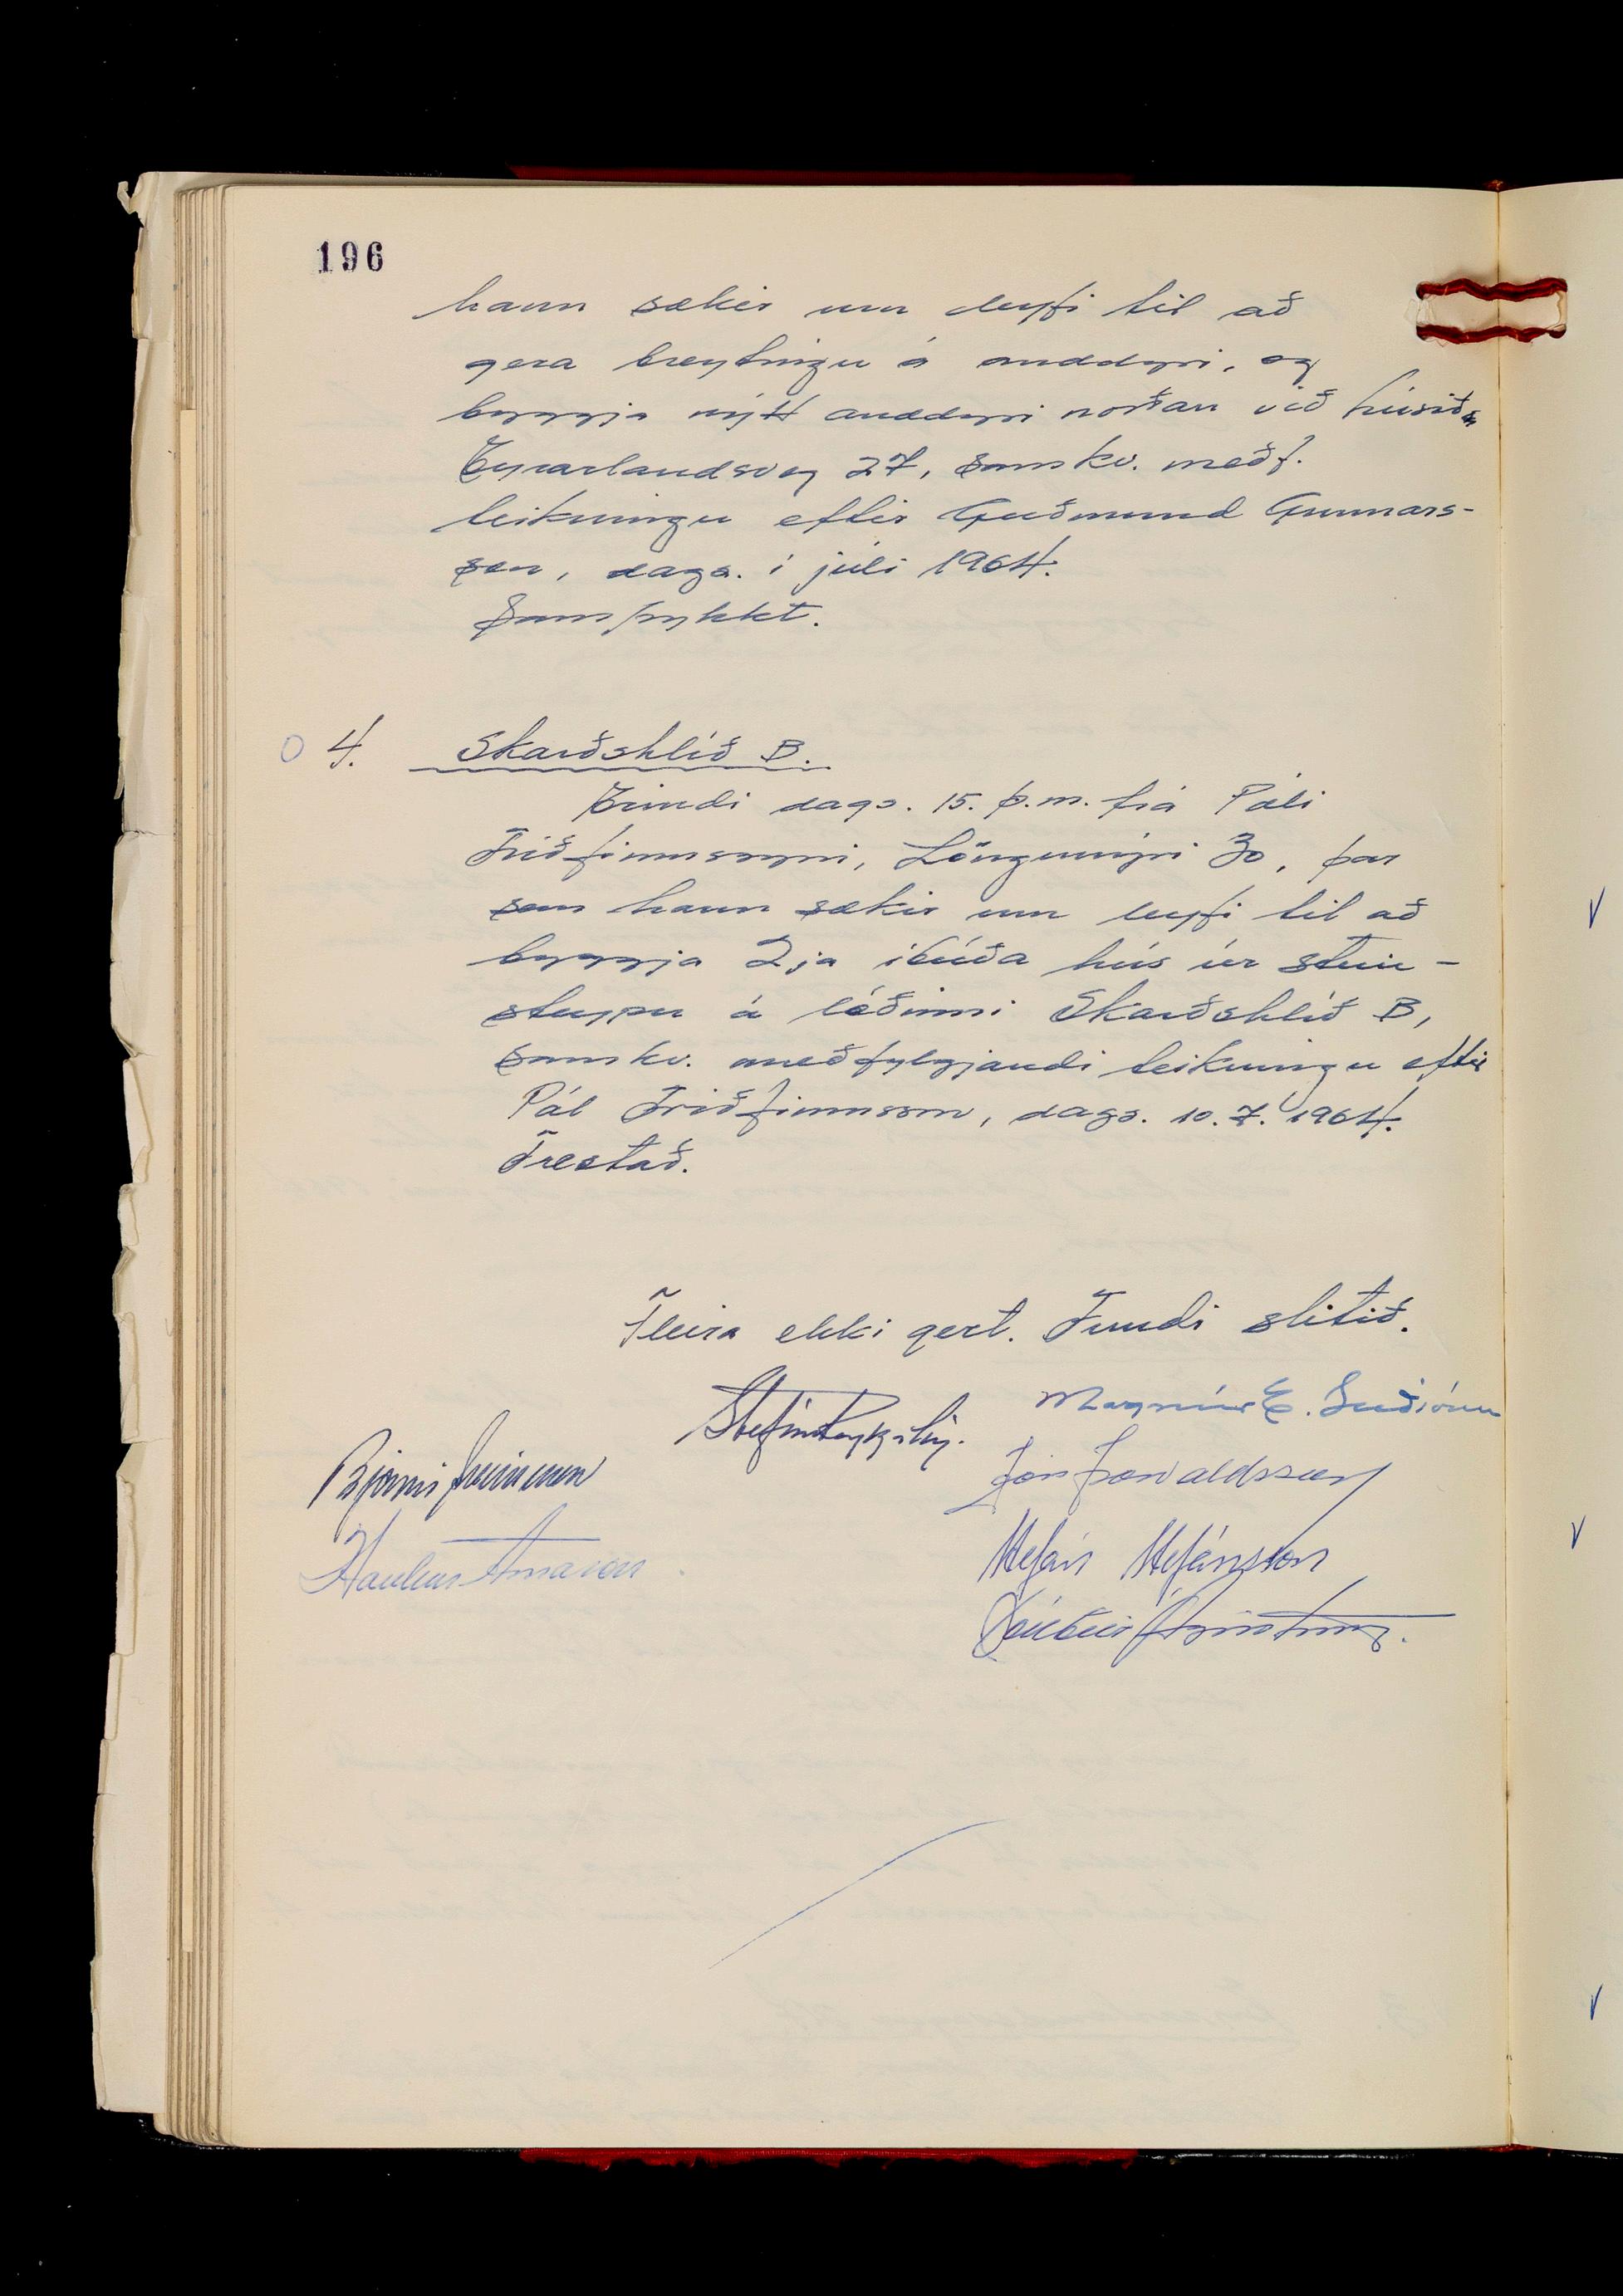 196
hann sækir um leyfi til að
gera breytingu á anddyri, og
byggja nýtt anddyri norðan við húsið
Eyrarlandsveg 27, samkv. meðf.
teikningu eftir Guðmund Gunnars-
son, dags. í júlí 1964.
Samþykkt.
4. Skarðshlíð B.
Erindi dags. 15. þ.m. frá Páli
Friðfinnssyni, Löngumýri 30, þar
sem hann sækir um leyfi til að
byggja 2ja íbúða hús úr stein-
steypu á lóðinni Skarðshlíð B,
samkv. meðfylgjandi teikningu eftir
Pál Friðfinnsson, dags. 10.7.1964.
Frestað.
Fleira ekki gert. Fundi slitið.
Stefán Reykjalín. Magnús E. Guðjónsson
Jón Þorvaldsson
Haukur Árnason.
Stefán Stefánsson